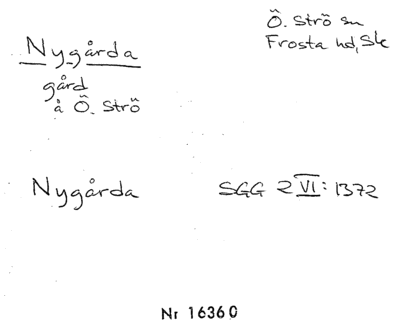 Nygårda
gård
å Ö. Strö
Ö. Strö sn
Frosta hd, Sk
Nygårda
SGG 2 VI: 1372
Nr 16360